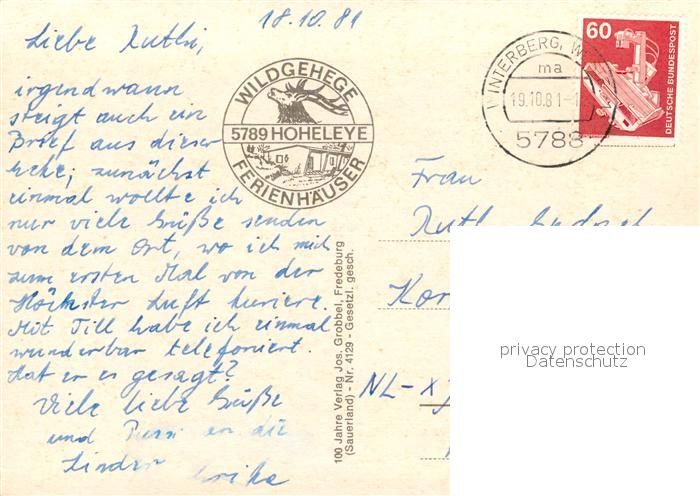 18.10.81
Liebe Ruthi,
irgendwann
steigt auch ein
Brief aus dieser
Ecke; zunächst
einmal wollte ich
nur viele Grüße senden
von dem Ort, wo ich mich
zum ersten Mal von der
Höchster Luft kuriere.
Mit Till habe ich einmal
wunderbar telefoniert.
Hat er es gesagt?
Viele liebe Grüße
und Bussi an die
Kinder Erika
WILDGEHEGE
5789 HOHELEYE
FERIENHÄUSER
100 Jahre Verlag Jos. Grobbel, Fredeburg
(Sauerland) - Nr. 4129 - Gesetzl. gesch.
WINTERBERG, W
ma
19.10.81-1
5788
60
DEUTSCHE BUNDESPOST
Frau
Ruth
Kor
NL-
privacy protection
Datenschutz